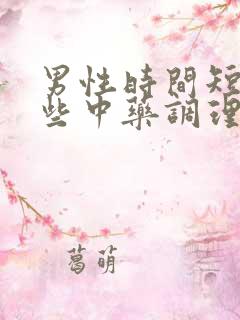 男性時間短
些中藥調理
葛萌